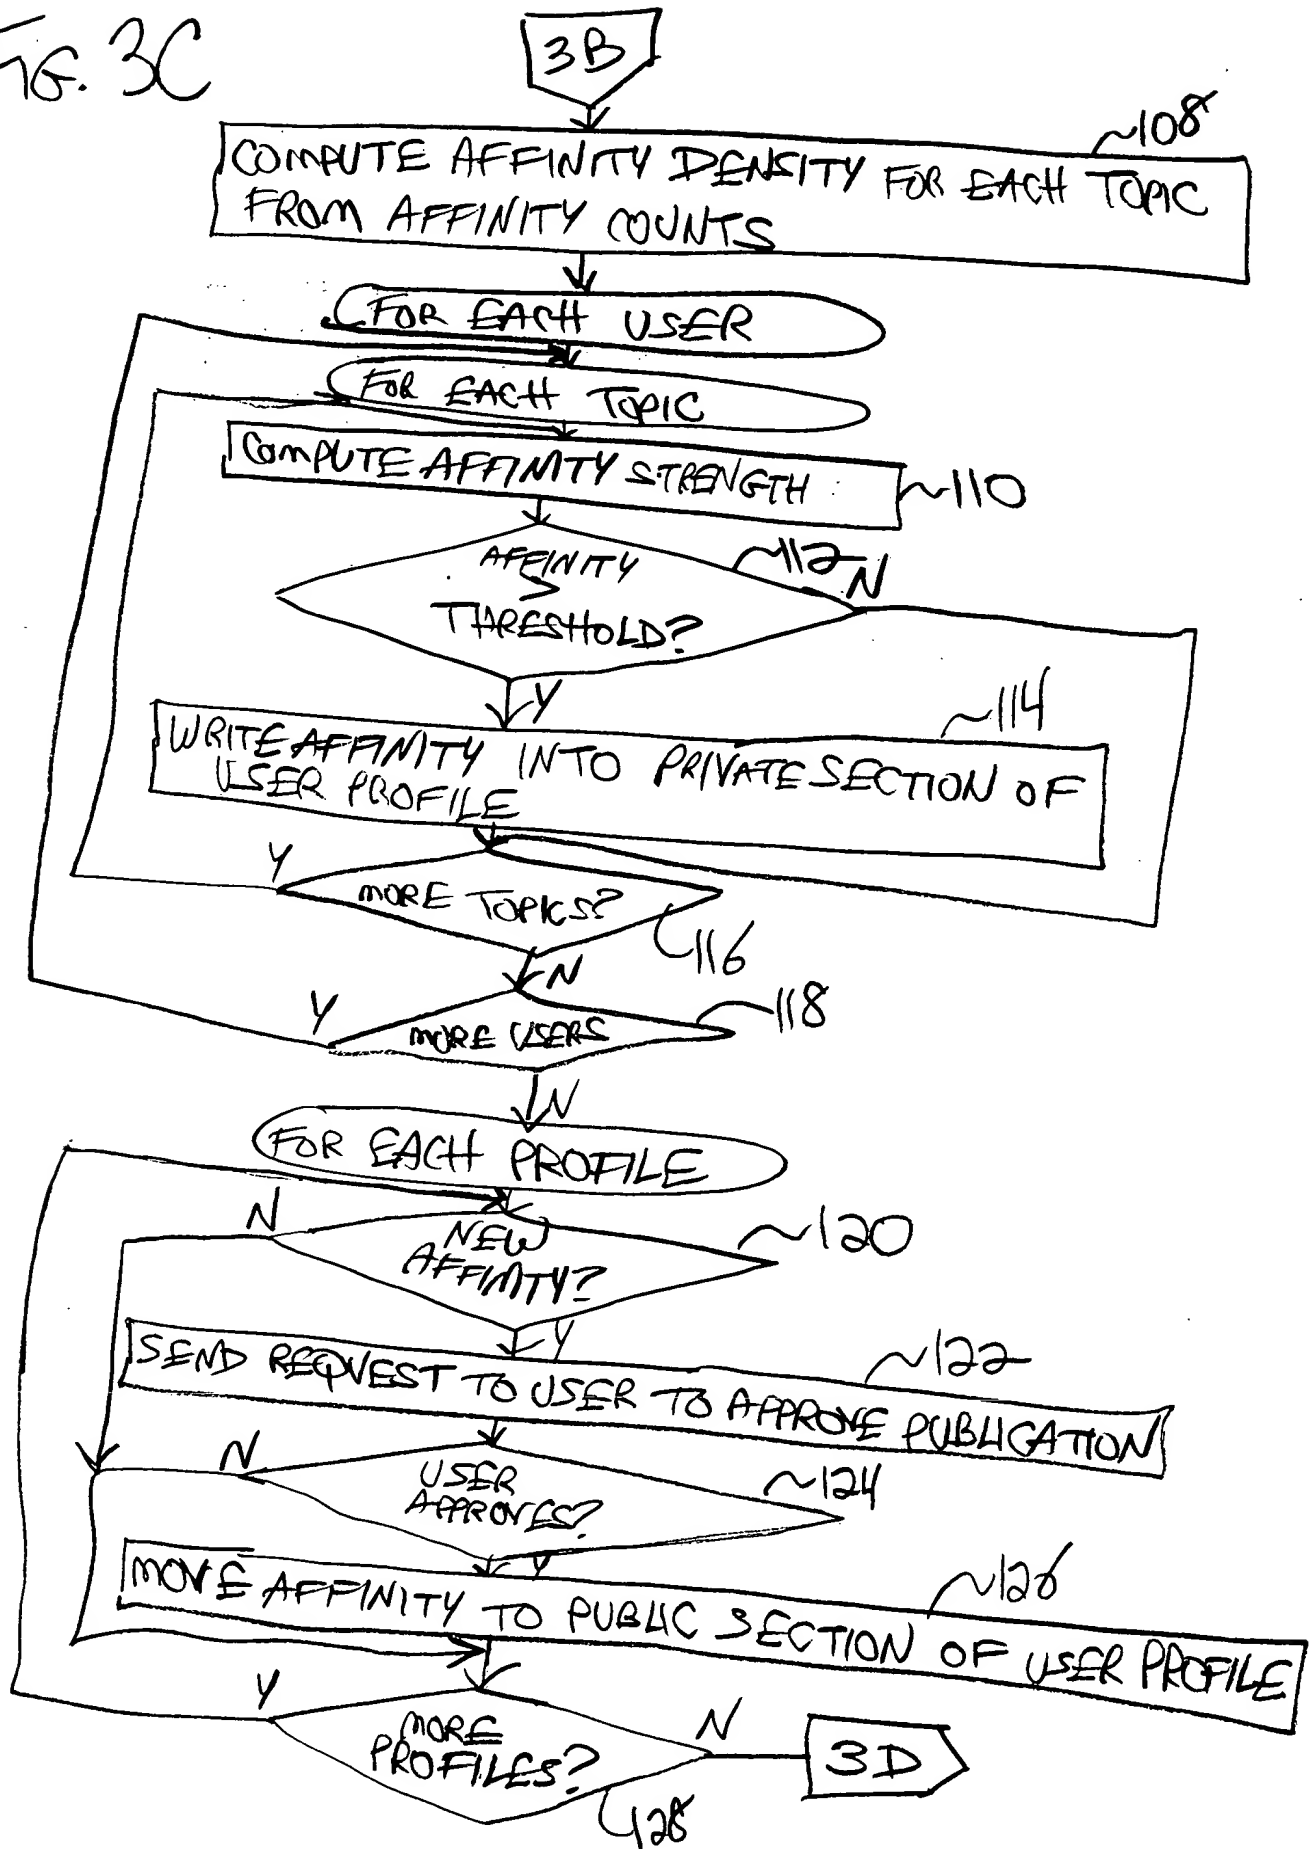 FIG. 3C
3B
~108
COMPUTE AFFINITY DENSITY FOR EACH TOPIC
FROM AFFINITY COUNTS
FOR EACH USER
FOR EACH TOPIC
COMPUTE AFFINITY STRENGTH
~110
AFFINITY
>
THRESHOLD?
~112
N
Y
~114
WRITE AFFINITY INTO PRIVATE SECTION OF
USER PROFILE
Y
MORE TOPICS?
116
N
Y
MORE USERS
118
N
FOR EACH PROFILE
N
NEW
AFFINITY?
~120
Y
~122
SEND REQUEST TO USER TO APPROVE PUBLICATION
N
USER
APPROVES?
~124
Y
~126
MOVE AFFINITY TO PUBLIC SECTION OF USER PROFILE
Y
MORE
PROFILES?
N
3D
128